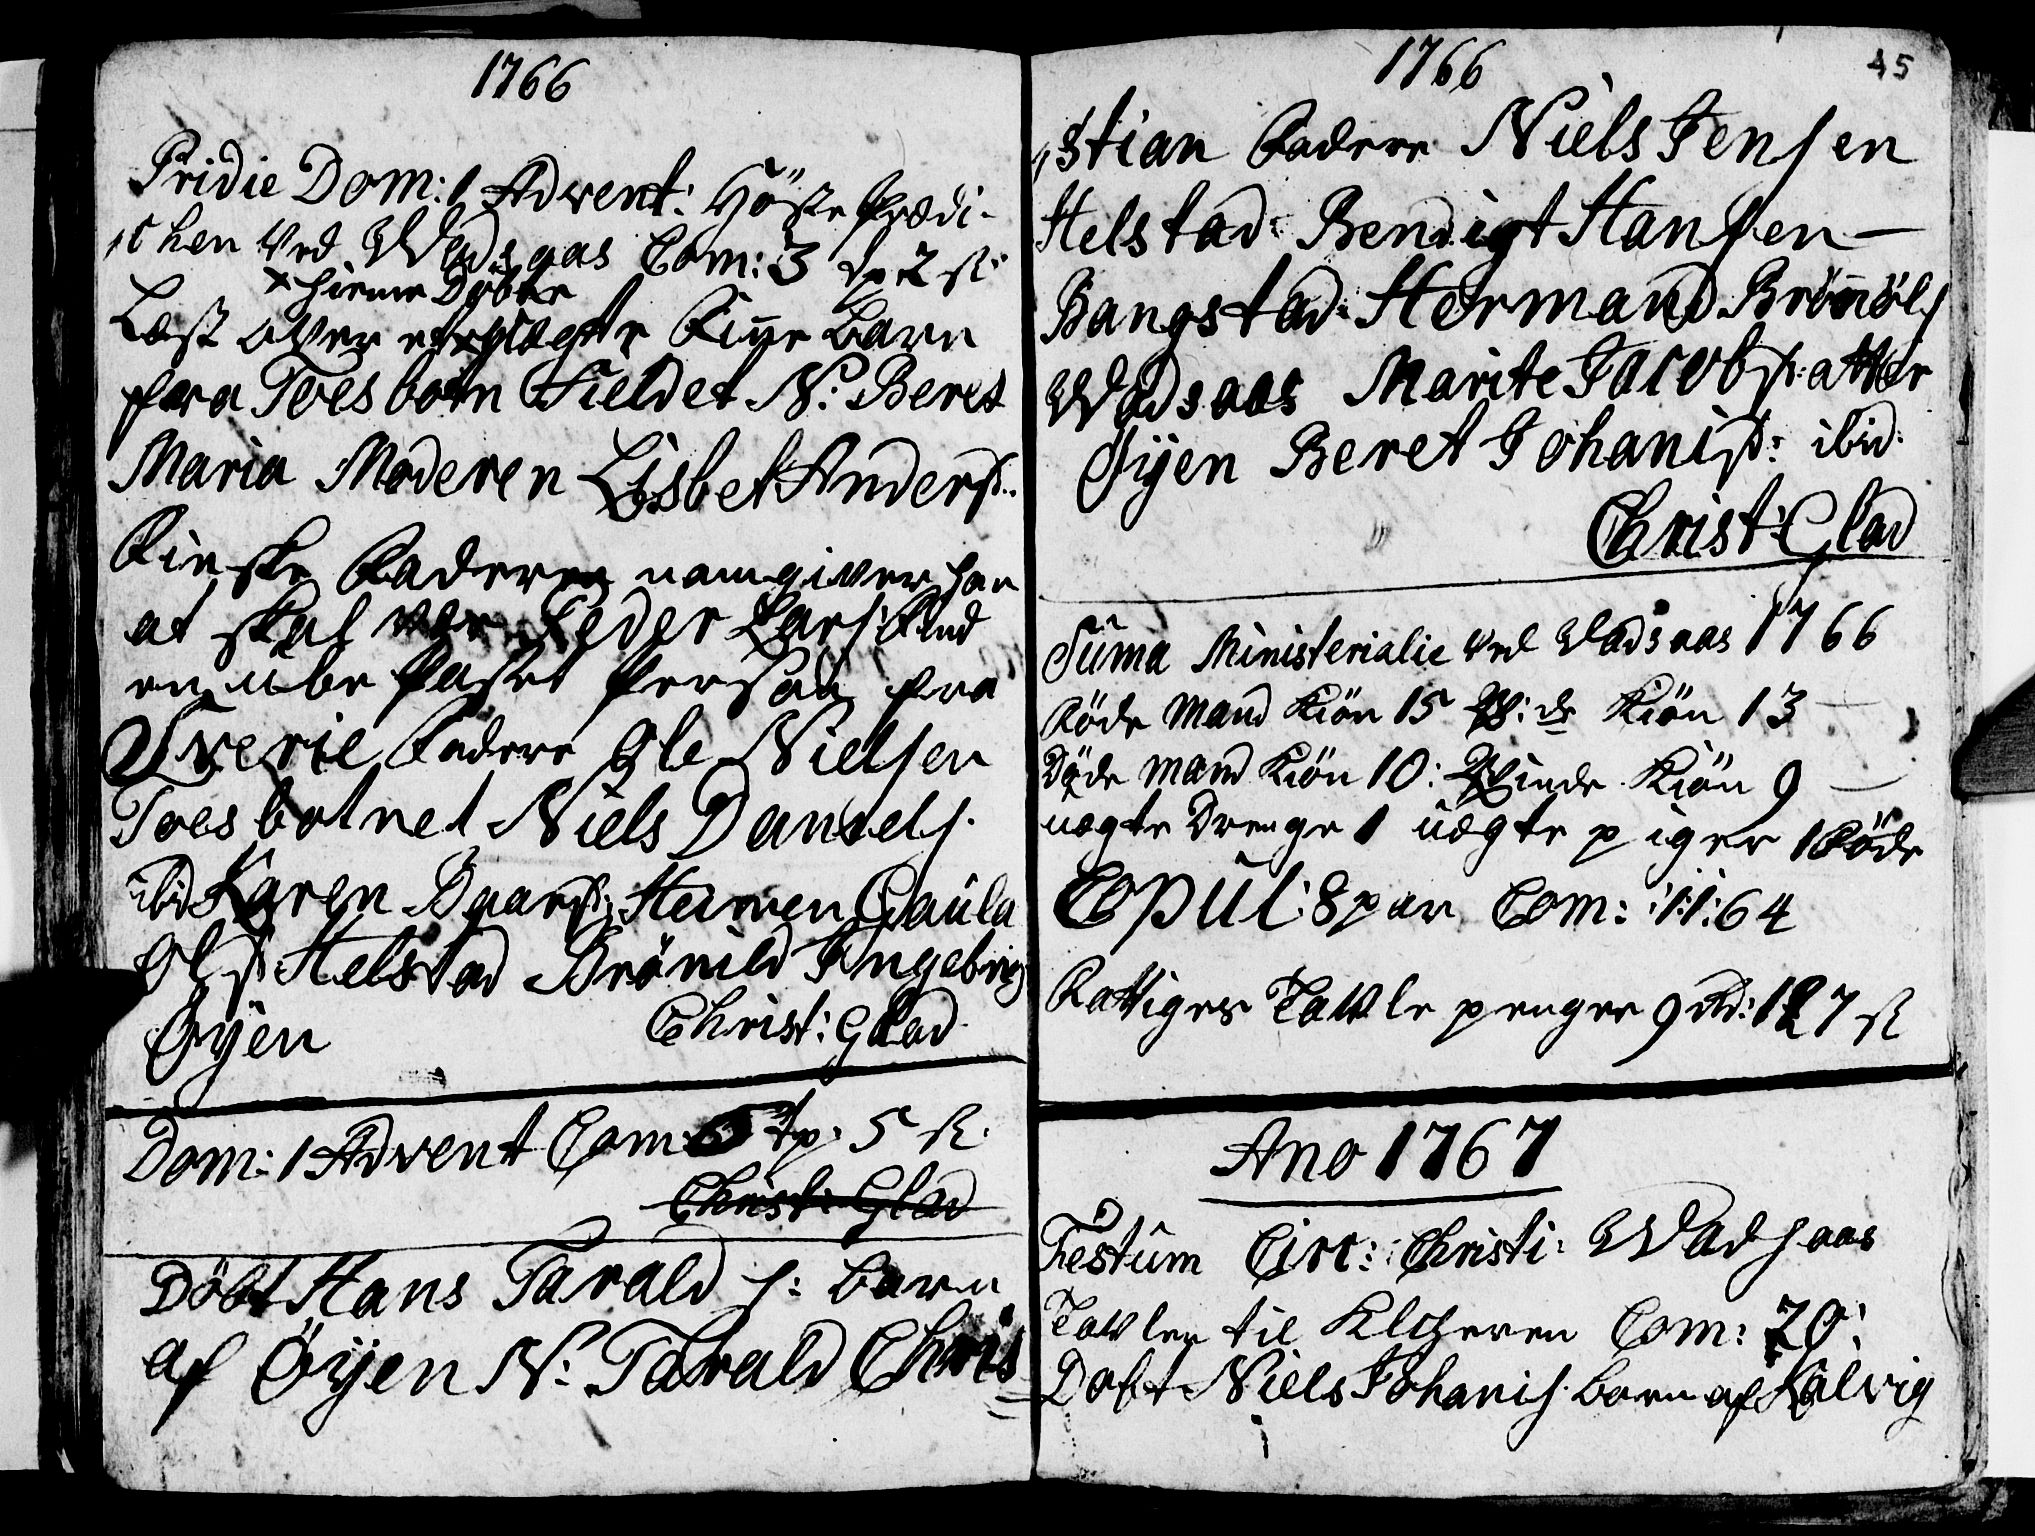 1766
Pridie Dom: 1 Advent: Höste Prædi-
chen ved Wadsaas Com: 3 Tp 2 ß
x hieme Döbte
Læst over et x uægte Finne Barn
fra Toesbotn Fieldet N: Beret
Maria Moderen Lisbet Anders:
Finske Faderen naungiver hun
at skal være Peder Lars: Find
en ube Paset Person fra
Sverie Fadere Ole Nielsen
Toesbotnet Niels Daniels:
ibid Karen Heimen Gaula
Ols: Helstad Brönild Ingebrig
Öyen Christ: Glad
Dom: 1 Advent Com: 6 Tp: 5 ß.
Christ: Glad
Döbt Hans Tarald s: barn
af Öyen N: Tarald Chris
1766 45
stian Fadere Niels Jensen
Helstad Bendigt Hansen
Bangstad: Hermand Brönöls
Wadsaas Marite Jacobs: atter
Öyen Beret Johanis: ibid:
Christ: Glad
Suma Ministerialie ved Vadsaas 1766
Föde Mand Kiön 15 Qv:de Kiön 13
Döde Mand Kiön 10: Qvinde Kiön 9
uægte Drenge 1 uægte piger 1 Föde
Copul: 8 par Com: 1164
Fattiges Tavle penger 9 Rd: 127 ß
Ano 1767
Festum Circ: Christi: Wadsaas
Tavlen til Klcheren Com: 20:
Dobt Niels Johanis: barn af Kalvig